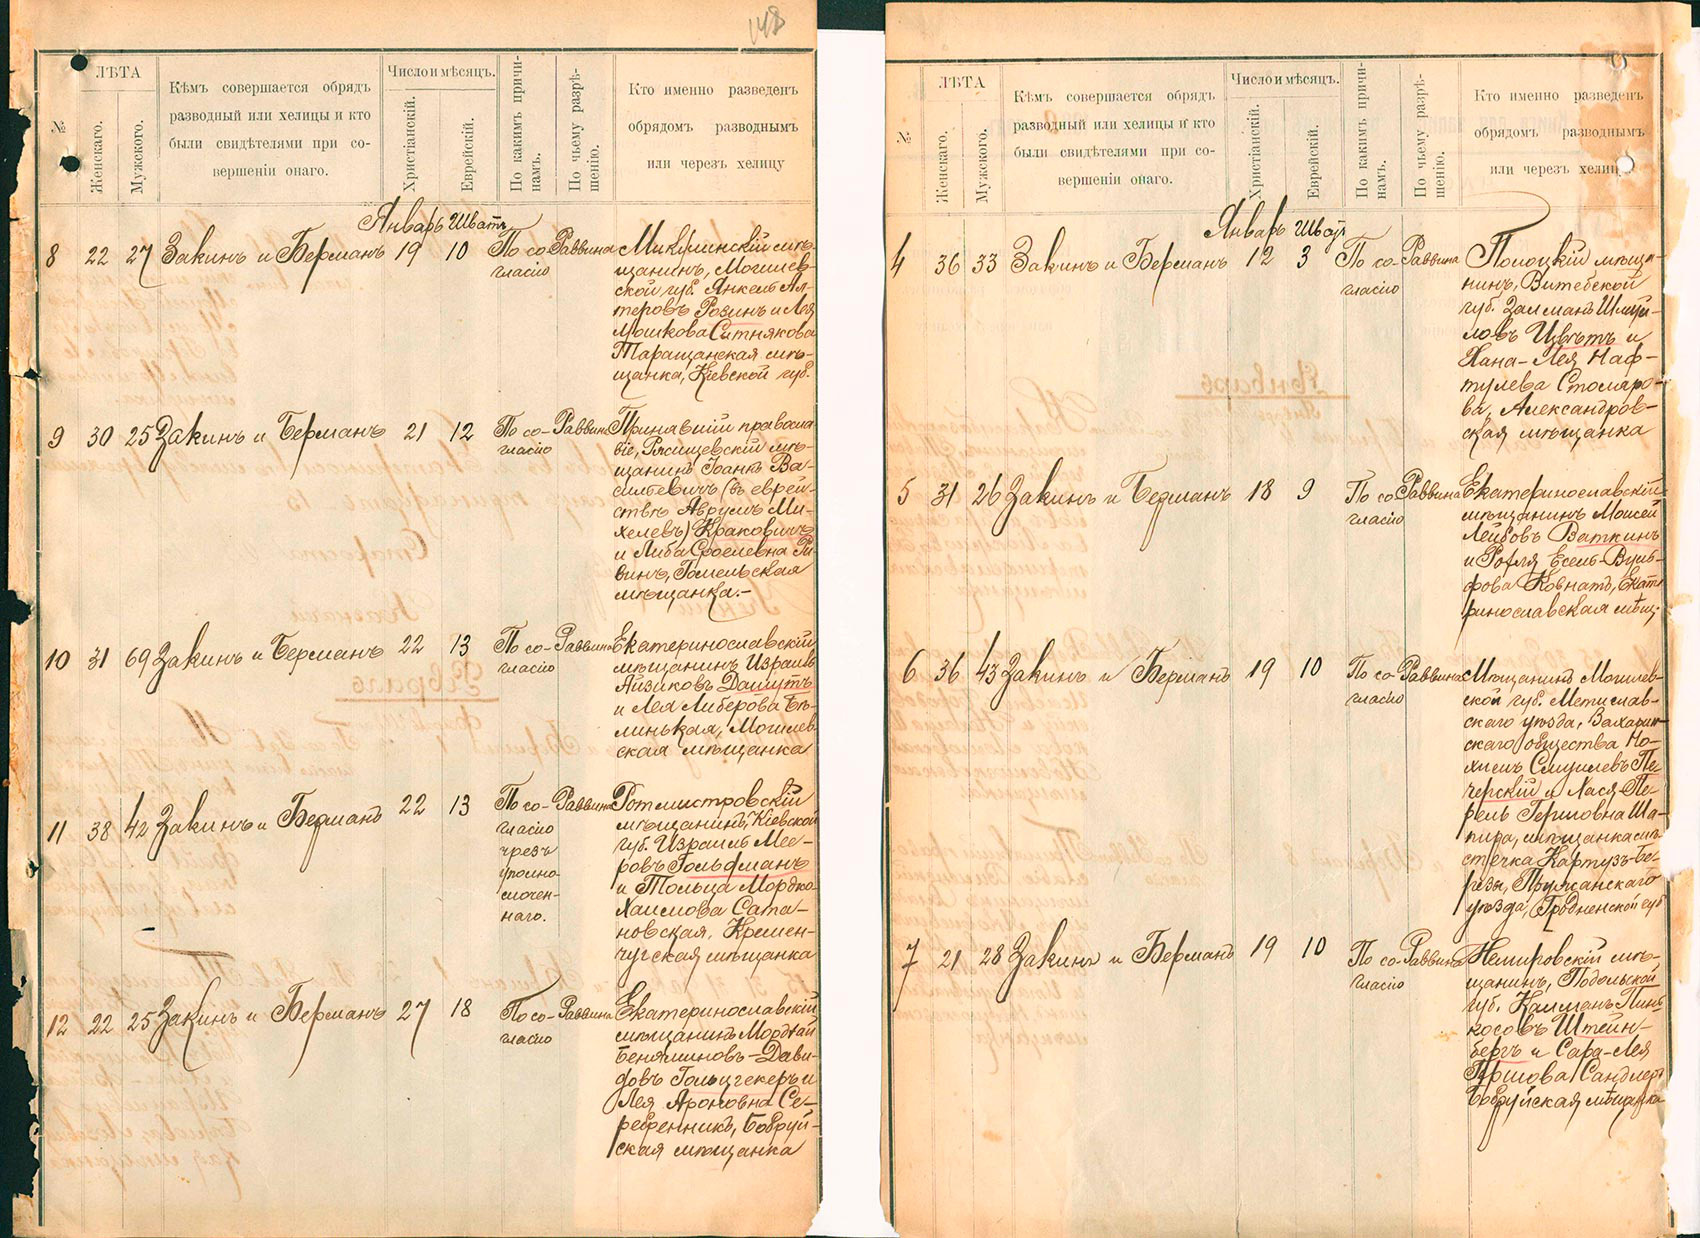 148
№
ЛѢТА
Женскаго.
Мужского.
Кѣмъ совершается обрядъ
разводный или хелицы и кто
были свидѣтелями при со-
вершеніи онаго.
Число и мѣсяцъ.
Христіанскій.
Еврейскій.
По какимъ причи-
намъ.
По чьему разрѣ-
шенію.
Кто именно разведенъ
обрядомъ разводнымъ
или черезъ хелицу
Январь Шватъ
8 22 27 Закинъ и Берманъ 19 10 По со- Раввина Микулинскій мѣ-
гласію щанинъ, Могилев-
ской губ. Янкель Ал-
теровъ Розинъ и Лея
Мошкова Ситнякова
Таращанская мѣ-
щанка, Кіевской губ.
9 30 25 Закинъ и Берманъ 21 12 По со- Раввина Принявшій правосла
гласію віе, Ряснецевскій мѣ-
щанинъ Іоанъ Ва-
сильевичъ (въ еврей-
ствѣ Аврумъ Ми-
хелевъ) Краковичъ
и Либа Сроелевна Ри
винъ, Гомельская
мѣщанка.-
10 31 69 Закинъ и Берманъ 22 13 По со- Раввина Екатеринославскій
гласію мѣщанинъ Израиль
Айзиковъ Дашутъ
и Лея Либерова Бѣ-
линькая, Могилев-
ская мѣщанка
11 38 42 Закинъ и Берманъ 22 13 По со- Раввина Ротмистровскій
гласію мѣщанинъ, Кіевской
чрезъ губ. Израиль Мее-
уполно- ровъ Гольфманъ
мочен- и Тольца Мордко-
наго. Хаимова Сата-
новская, Кремен-
чугская мѣщанка
12 22 25 Закинъ и Берманъ 27 18 По со- Раввина Екатеринославскій
гласію мѣщанинъ Мордхай
Беняминовъ-Дави-
довъ Гольцгекеръ и
Лея Ароновна Се-
ребренникъ, Бобруй-
ская мѣщанка
№
ЛѢТА
Женскаго.
Мужского.
Кѣмъ совершается обрядъ
разводный или хелицы и кто
были свидѣтелями при со-
вершеніи онаго.
Число и мѣсяцъ.
Христіанскій.
Еврейскій.
По какимъ причи-
намъ.
По чьему разрѣ-
шенію.
Кто именно разведенъ
обрядомъ разводнымъ
или черезъ хелиц
Январь Шватъ
4 36 33 Закинъ и Берманъ 12 3 По со- Раввина Полоцкій мѣща-
гласію нинъ, Витебской
губ. Залманъ Шмуй-
ловъ Цвѣтъ и
Хана-Лея Наф-
тулева Столяро-
ва, Александров-
ская мѣщанка
5 31 26 Закинъ и Берманъ 18 9 По со- Раввина Екатеринославскій
гласію мѣщанинъ Моисей
Лейбовъ Ваткинъ
и Рохля Есель-Вуль-
фова Ковнатъ, Екате
ринославская мѣщ.
6 36 43 Закинъ и Берманъ 19 10 По со- Раввина Мѣщанинъ Могилев-
гласію ской губ. Метиславъ-
скаго уѣзда, Захарин-
скаго общества Но-
химъ Смуилевъ Пе-
черскій и Хася-Пе-
рель Гершовна Ша-
пира, мѣщанка мѣ-
стечка Картузъ-Бе-
резы, Пружанскаго
уѣзда, Гродненской губ
7 21 28 Закинъ и Берманъ 19 10 По со- Раввина Немировскій мѣ-
гласію щанинъ, Подольской
губ. Калманъ Пинь-
косовъ Штейн-
бергъ и Сара-Лея
Гершова Сандлеръ
Бобруйская мѣщанка